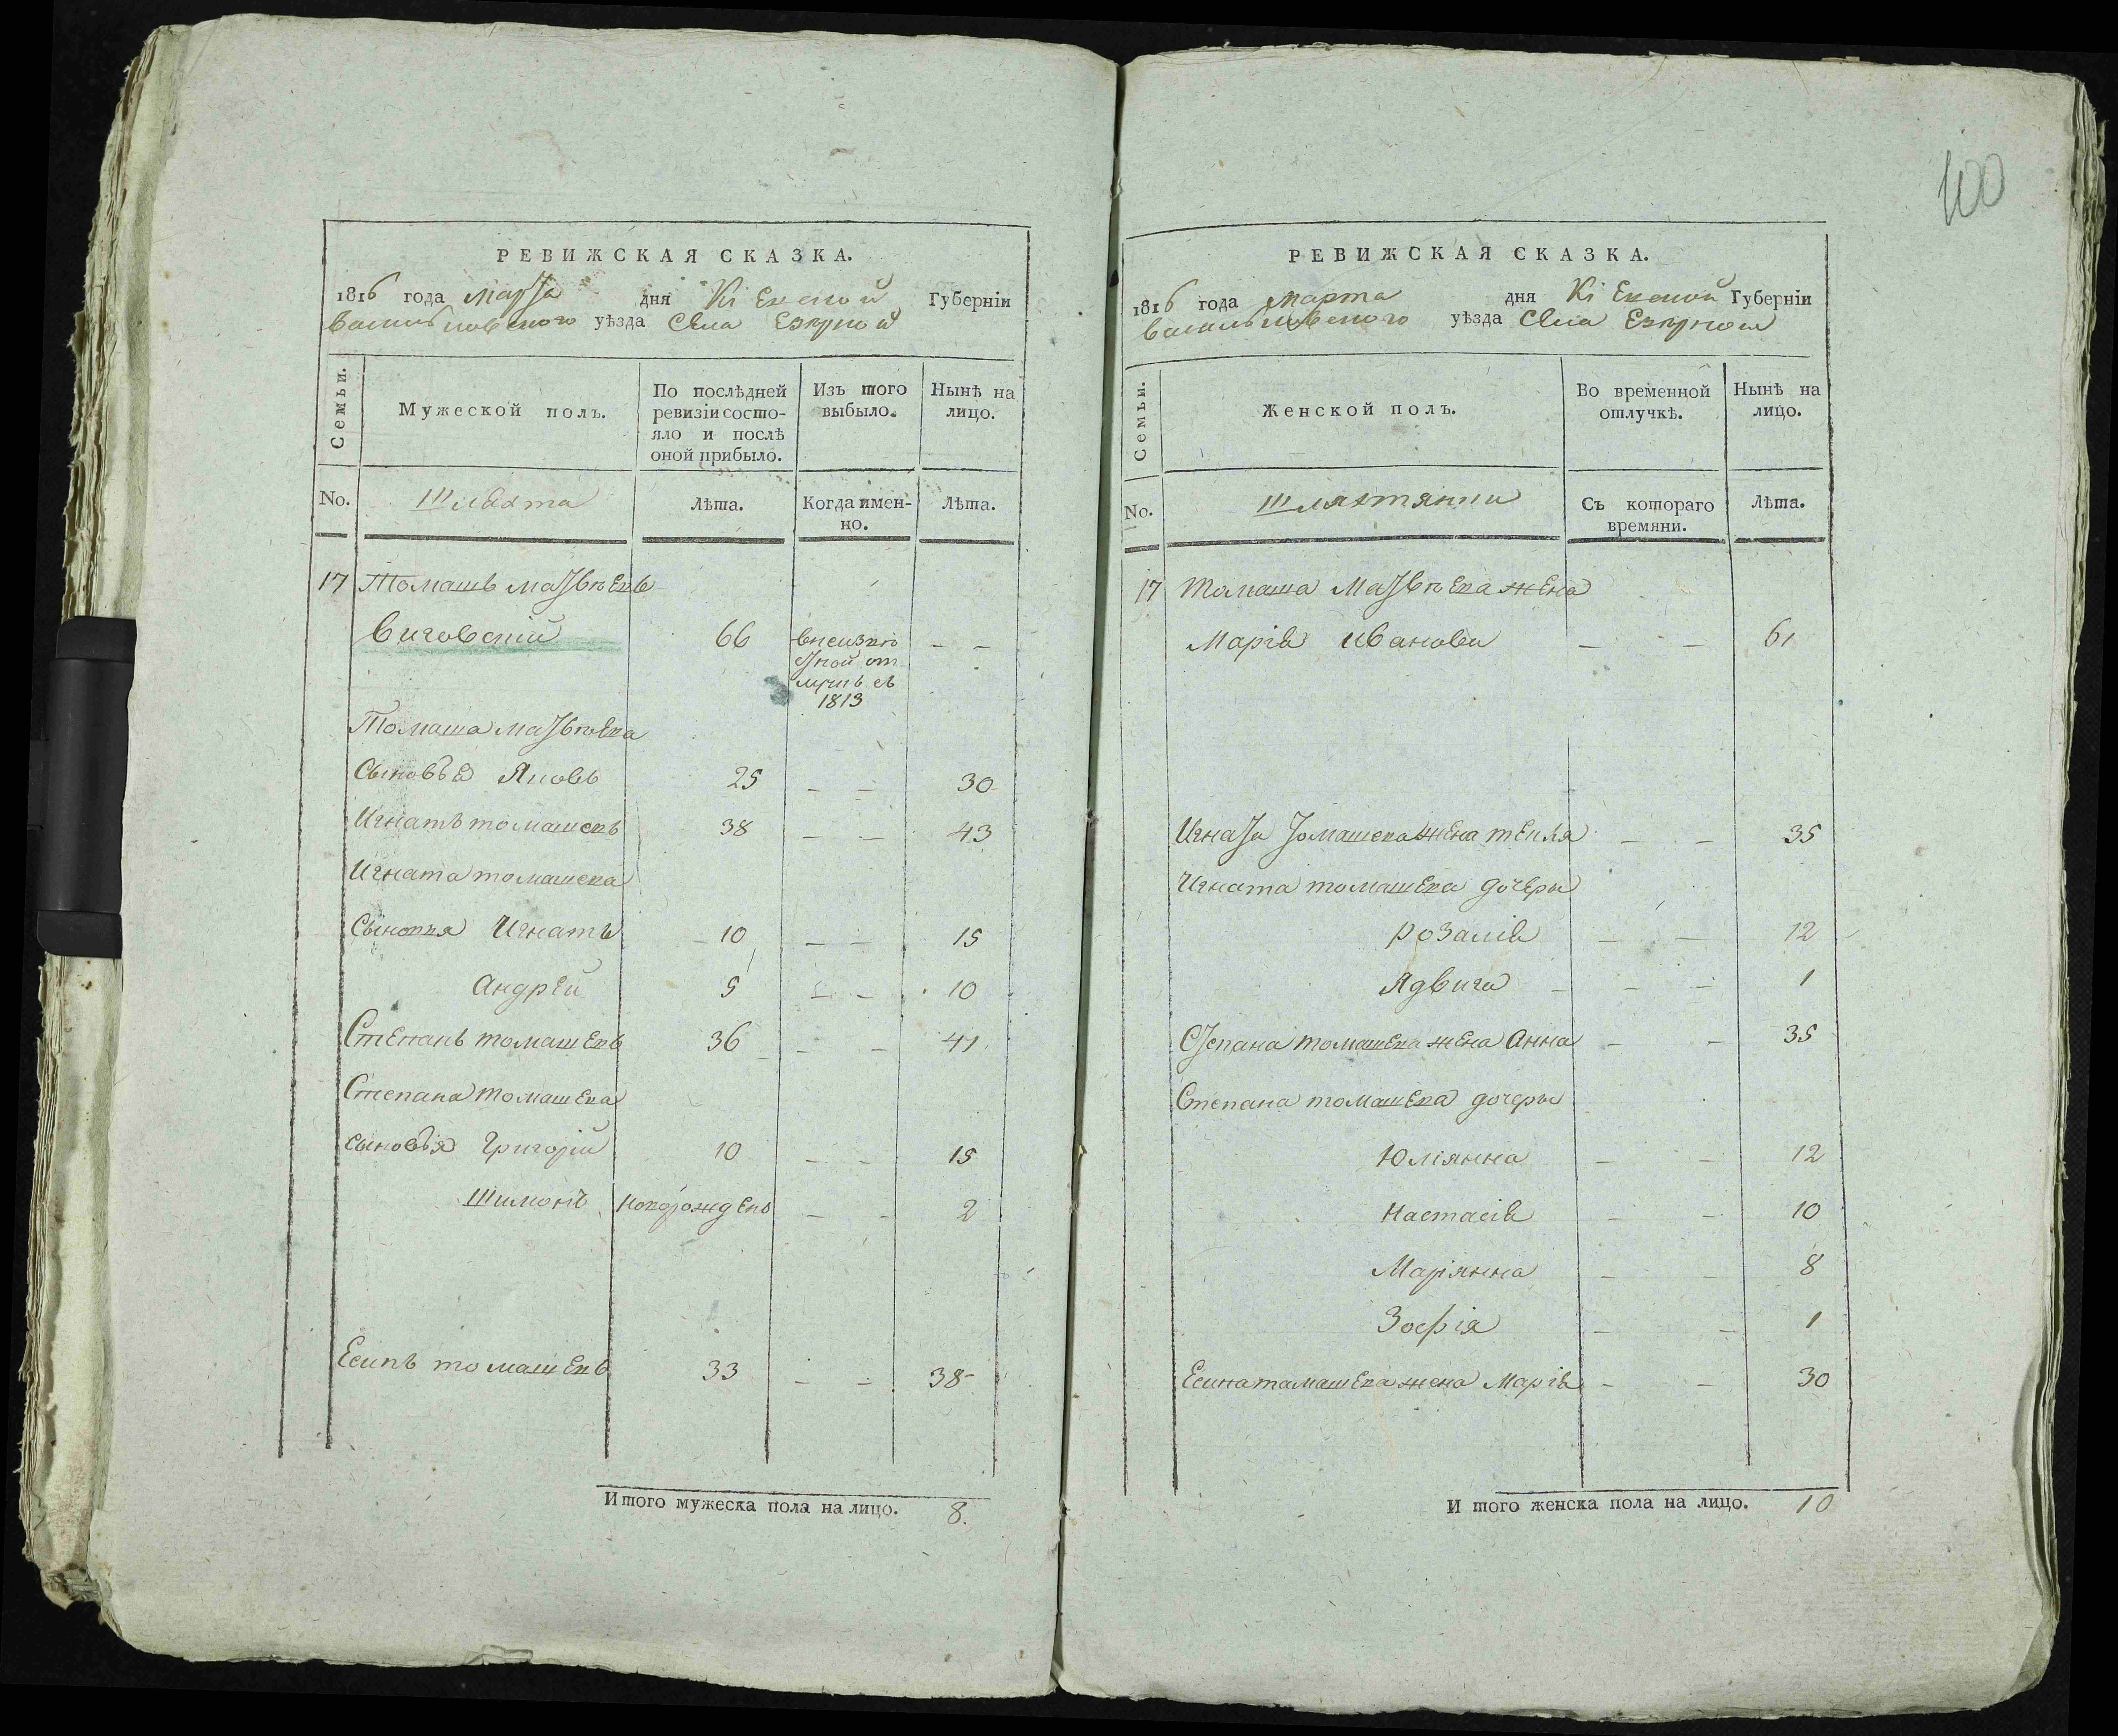 100
РЕВИЖСКАЯ СКАЗКА.
1816 года Марта дня Кіевской Губерніи
Васильковского уѣзда Села Езерной
Семьи.
Мужеской полъ.
По послѣдней ревизіи состо-
яло и послѣ
оной прибыло.
Изъ того
выбыло.
Нынѣ на
лицо.
No.
Шляхта
Лѣта.
Когда имен-
но.
Лѣта.
17 Томашъ Матвѣевъ
Виговскій 66 в неизвѣ
стной от
лучкѣ съ
1813 — —
Томаша Матвѣева
Сыновья Яковъ 25 — — 30
Игнатъ томашевъ 38 — — 43
Игната томашева
Сыновья Игнатъ 10 — — 15
Андрей 5 — — 10
Степанъ томашевъ 36 — — 41
Степана томашева
сыновья Григорій 10 — — 15
Шимонъ новорожденъ — — 2
Есипъ томашевъ 33 — — 38
Итого мужеска пола на лицо. 8.
РЕВИЖСКАЯ СКАЗКА.
1816 года марта дня Кіевской Губерніи
Васильковского уѣзда Села Езерной
Семьи.
Женской полъ.
Во временной
отлучкѣ.
Нынѣ на
лицо.
No.
Шляхтянки
Съ котораго
времяни.
Лѣта.
17 Томаша Матвѣева жена
Марія Иванова — — 61
Игната томашева жена текля — — 35
Игната томашева дочери
розалія — — 12
Ядвига — — 1
Степана томашева жена Анна — — 35
Степана томашева дочери
Юліянна — — 12
Настасія — — 10
Маріянна — — 8
Зофія — — 1
Есипа тамашева жена Марія — — 30
И того женска пола на лицо. 10